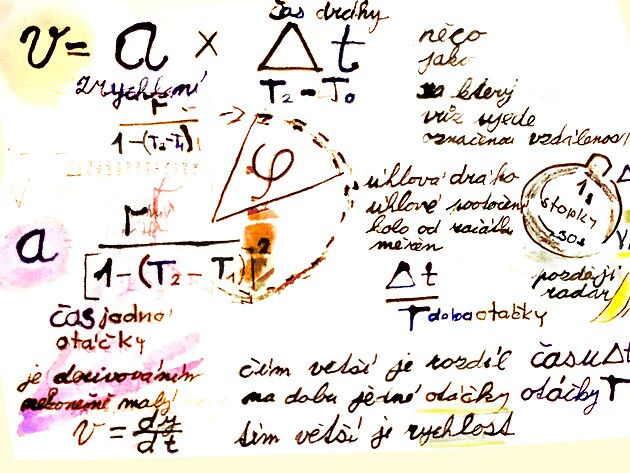 čas dráhy
v = a × Δt
zrychlení
T₂ - T₀
něco
jako
za který
vůz ujede
označenou vzdálenost
r
1-(T₂-T₁)
φ
úhlová dráha
úhlové
kolo od začátku
měřen
1s
stopky
30s
a r
[1-(T₂-T₁)]²
Δt
T doba otáčky
později
radar
čas jedné
otáčky
je derivováním
nekonečně malý
v = dy
dt
čím větší je rozdíl času Δt
na dobu jedné otáčky otáčky T
tím větší je rychlost